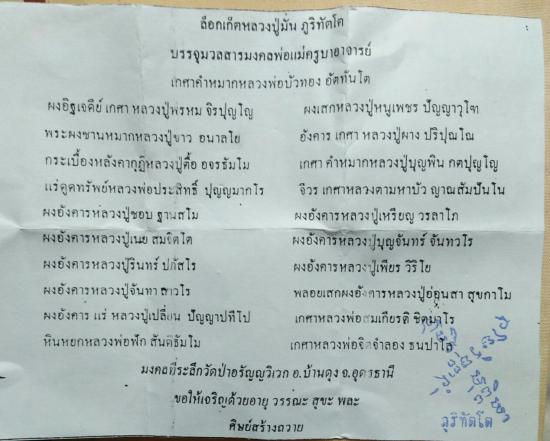 ล็อกเก็ตหลวงปู่มั่น ภูริทัตโต
บรรจุมวลสารมงคลพ่อแม่ครูบาอาจารย์
เกศาคำหมากหลวงพ่อบัวทอง อัตทันโต
ผงอิฐเจดีย์ เกศา หลวงปู่พรหม จิรปุญโญ
ผงเสกหลวงปู่หนูเพชร ปัญญาวุโฑ
พระผงชานหมากหลวงปู่ขาว อนาลโย
อังคาร เกศา หลวงปู่ผาง ปริปุณโณ
กระเบื้องหลังคากุฏิหลวงปู่ตื้อ อจรธัมโม
เกศา คำหมากหลวงปู่บุญพิน กตปุญโญ
แร่ดูดทรัพย์หลวงพ่อประสิทธิ์ ปุญญมากโร
จีวร เกศาหลวงตามหาบัว ญาณสัมปันโน
ผงอังคารหลวงปู่ชอบ ฐานสโม
ผงอังคารหลวงปู่เหรียญ วรลาโภ
ผงอังคารหลวงปู่เนย สมจิตโต
ผงอังคารหลวงปู่บุญจันทร์ จันทวโร
ผงอังคารหลวงปู่รินทร์ ปภัสโร
ผงอังคารหลวงปู่เพียร วิริโย
ผงอังคารหลวงปู่จันทา ถาวโร
พลอยเสกผงอังคารหลวงปู่อ่อนสา สุขกาโม
ผงอังคาร แร่ หลวงปู่เปลี่ยน ปัญญาปทีโป
เกศาหลวงพ่อสมเกียรติ ชิตมาโร
หินหยกหลวงพ่อฟัก สันตธัมโม
เกศาหลวงพ่อจิตจำลอง ธนปาโล
มงคลที่ระลึกวัดป่าอรัญญวิเวก อ.บ้านดุง จ.อุดรธานี
ขอให้เจริญด้วยอายุ วรรณะ สุขะ พละ
ศิษย์สร้างถวาย
ภูริทัตโต